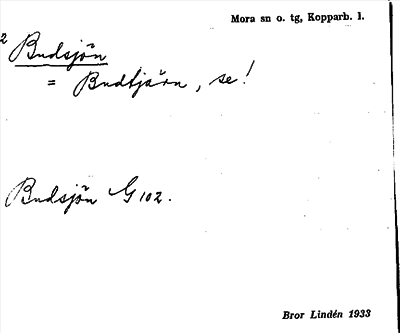 Mora sn o. tg, Kopparb. l.
2
Budsjön
= Budtjärn, se!
Budsjön G 102.
Bror Lindén 1933